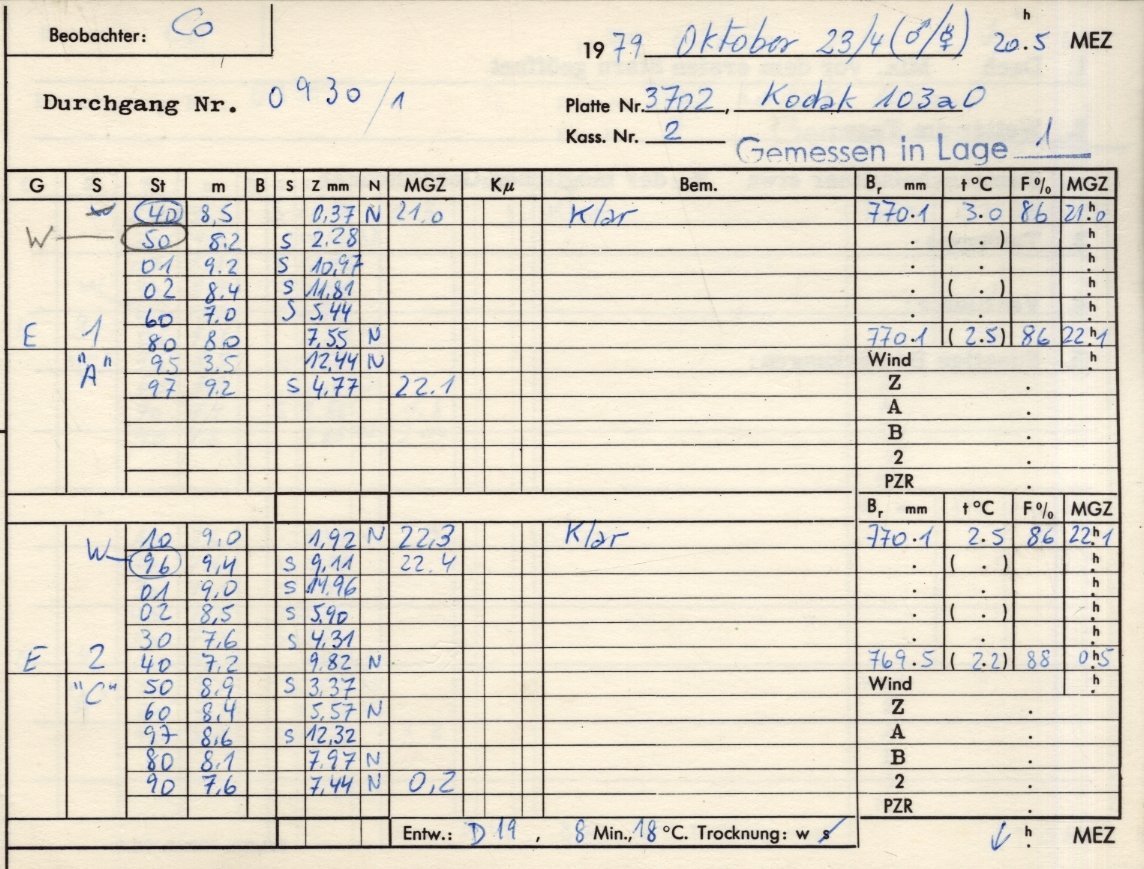 Beobachter: Co
1979 Oktober 23/4 (♂/☿) 20.5 h MEZ
Durchgang Nr. 0930/1
Platte Nr. 3702, Kodak 103aO
Kass. Nr. 2
Gemessen in Lage 1
G S St m B S Z mm N MGZ Kμ Bem. Br mm t°C F% MGZ
40 8,5 0,37 N 21.0 Klar 770.1 3.0 86 21h0
W 50 8.2 S 2.28 ( . ) h
01 9.2 S 10,97 h
02 8.4 S 11,81 ( . ) h
60 7.0 S 5,44 h
E 1 80 8.0 7,55 N 770.1 (2.5) 86 22h1
"A" 95 3.5 12,44 N Wind h
97 9.2 S 4,77 22.1 Z .
A .
B .
2 .
PZR .
Br mm t°C F% MGZ
10 9,0 1,92 N 22,3 Klar 770.1 2.5 86 22h1
W 96 9,4 S 9,11 22.4 ( . ) h
01 9,0 S 14,96 h
02 8,5 S 5,90 ( . ) h
30 7,6 S 4,31 h
E 2 40 7,2 9,82 N 769.5 (2.2) 88 0h5
"C" 50 8,9 S 3,37 Wind h
60 8,4 5,57 N Z .
97 8,6 S 12,32 A .
80 8,1 7,97 N B .
90 7,6 7,44 N 0,2 2 .
PZR .
Entw.: D 19, 8 Min., 18 °C. Trocknung: w s h MEZ